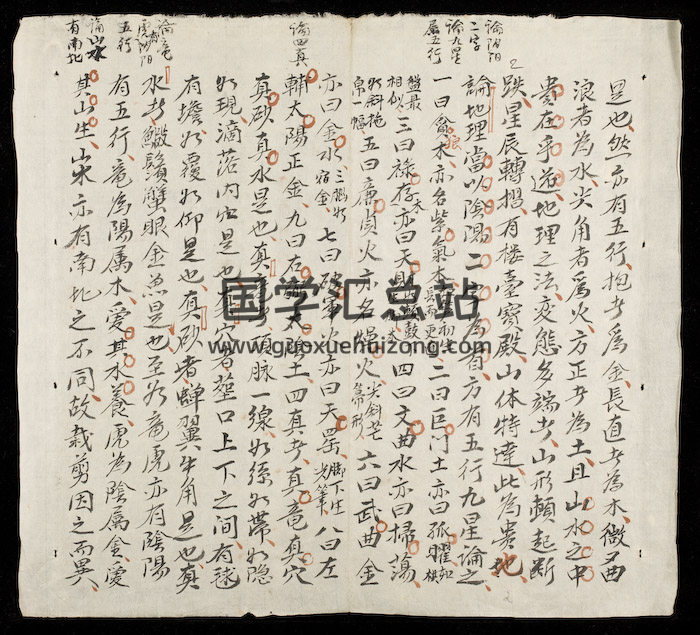 是也然亦有五行抱者為金長直者為木微曲
浪者為水尖角者爲火方正者為土且山水之中
貴在乎逆地理之法变態多端者山形頓起斷
跌星辰轉摺有楼臺寶殿山体特達此為貴也
論陰陽
二字
論地理當以陰陽二 為 方有五行九星論之
論九星
屬五行
一曰貪狼木亦名紫氣木 二曰巨门土亦曰孤曜如棋
盤最
相似
三曰祿存 亦曰天財 四曰文曲水亦曰掃蕩
如斜拖
帛一幅
五曰廉貞火亦名燥火尖斜芒 六曰武曲金
亦曰金水 七曰破軍火亦曰天罡脚下生 八曰左
論四真
輔太陽正金九曰右弼太陰土四真者真竜真穴
真砂真水是也真 頂脉一線如絲如帶如隐
如現滴落内穴是也真穴者 口上下之间有毬
有簷如覆如仰是也真砂者蟬翼牛角是也真
論竜
虎有陰陽
五行
水者鰕鬚蟹眼金魚是也至如竜虎亦有陰陽
有五行竜為陽属木愛其水養虎為陰属金愛
論山水
有南北
其山生山水亦有南北之不同故栽剪因之而異
国学汇总站
www.guoxuehuizong.com